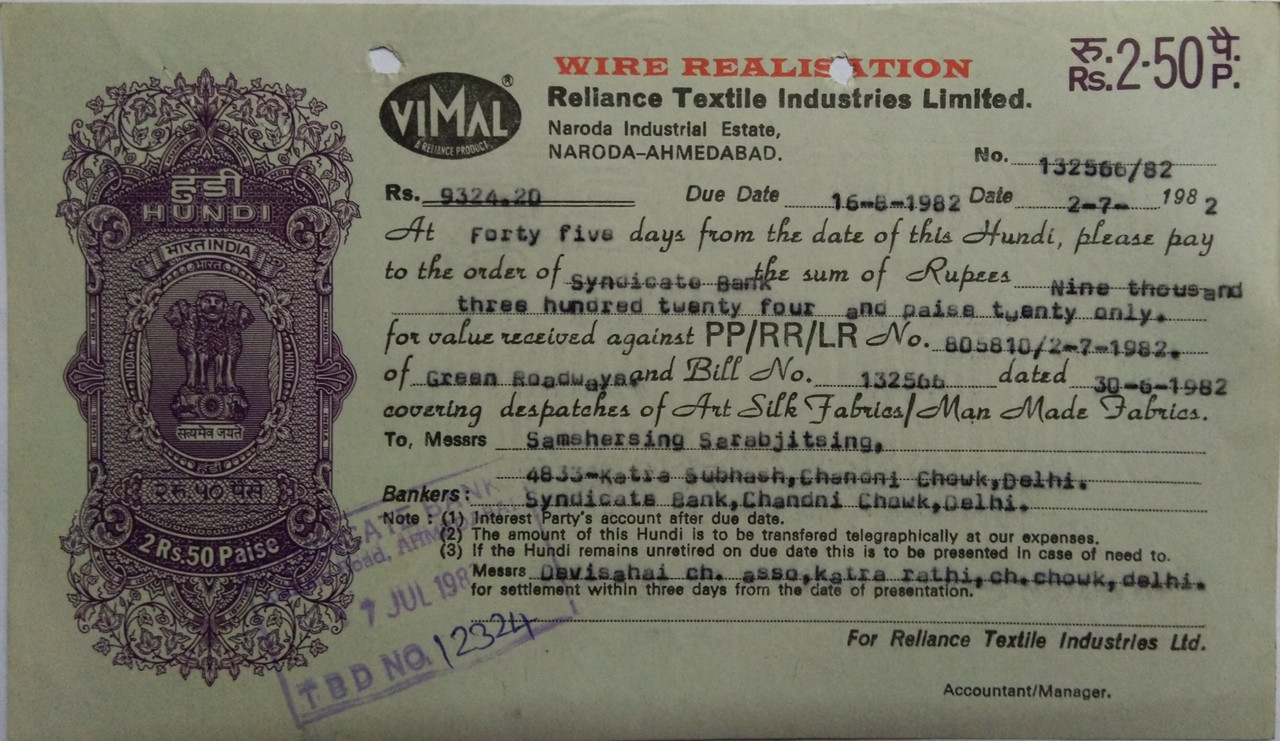 WIRE REALISATION
रु. 2·50 पै.
Rs. P.
VIMAL ®
A RELIANCE PRODUCT.
Reliance Textile Industries Limited.
Naroda Industrial Estate,
NARODA-AHMEDABAD.
No. 132566/82
Rs. 9324.20 Due Date 16-8-1982 Date 2-7- 1982
At Forty five days from the date of this Hundi, please pay
to the order of Syndicate Bank the sum of Rupees Nine thousand
three hundred twenty four and paise twenty only.
for value received against PP/RR/LR No. 805810/2-7-1982.
of Green Roadways and Bill No. 132566 dated 30-6-1982
covering despatches of Art Silk Fabrics/Man Made Fabrics.
To, Messrs Samshersing Sarabjitsing,
4833-Katra Subhash,Chandni Chowk,Delhi.
Bankers: Syndicate Bank,Chandni Chowk,Delhi.
Note : (1) Interest Party's account after due date.
(2) The amount of this Hundi is to be transfered telegraphically at our expenses.
(3) If the Hundi remains unretired on due date this is to be presented in case of need to.
Messrs Devisahai ch. asso,katra rathi,ch.chowk,delhi.
for settlement within three days from the date of presentation.
For Reliance Textile Industries Ltd.
Accountant/Manager.
हुंडी
HUNDI
भारत INDIA
भारत
INDIA
HUNDI
सत्यमेव जयते
हुंडी
२ रु. ५० पैसे
2 Rs. 50 Paise
BANK
7 JUL 198
T B D NO. 12324